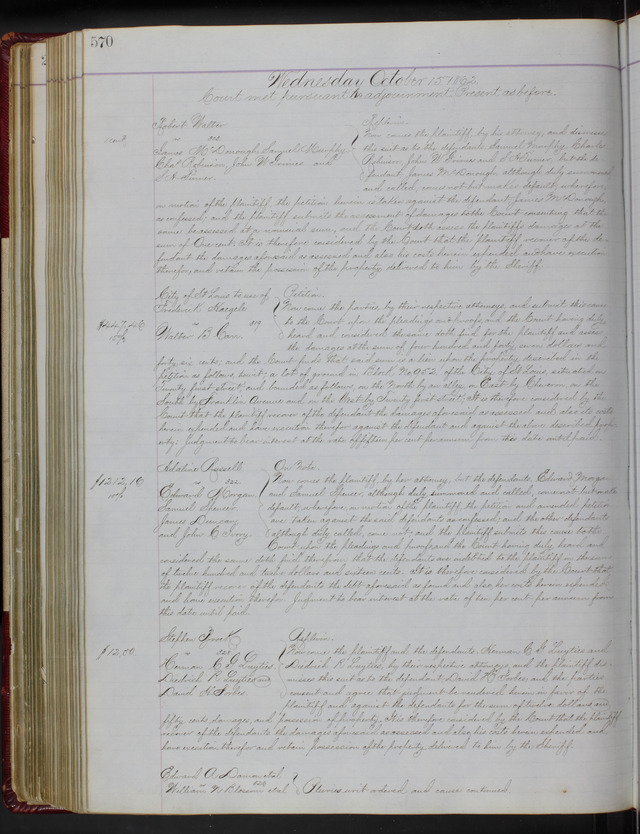 570
Wednesday October 15 1862
Court met pursuant to adjournment. Present as before.
Robert Walker
vs
James McDonough, Samuel Murphy,
Chas Robinson, John W. and
Replevin.
Now comes the plaintiff, by his attorney, and dismisses
this suit as to the defendants Samuel Murphy, Charles
Robinson, John W. and but the de-
fendant James McDonough, although duly summoned
and called, comes not but makes default; wherefore,
on motion of the plaintiff, the petition herein is taken against the defendant James McDonough
as confessed; and the plaintiff submits the assessment of damages to the Court consenting that the
same be assessed at a nominal sum, and the Court doth assess the plaintiff's damages at the
sum of One cent. It is therefore considered by the Court that the plaintiff recover of the de-
fendant the damages aforesaid as assessed and also his costs herein expended and have execution
therefor, and retain the possession of the property delivered to him by the Sheriff.
City of St Louis to use of
Frederick
vs
Walter B. Carr
$447.46
15%
Petition.
Now come the parties, by their respective attorneys, and submit this cause
to the Court upon the pleadings and proofs, and the Court having duly
heard and considered the same doth find for the plaintiff and assess
the damages at the sum of four hundred and forty seven dollars and
forty six cents; and the Court finds that said sum is a lien upon the property described in the
petition as follows, to wit: a lot of ground in Block No 952 of the City of St Louis, situated on
Twenty first street, and bounded as follows, on the North by an alley, on East by on the
South by Franklin Avenue and on the West by Twenty first street; It is therefore considered by the
Court that the plaintiff recover of the defendant the damages aforesaid as assessed and also its costs
herein expended and have execution therefor against the defendant and against the above described prop-
erty; Judgment to bear interest at the rate of fifteen per cent per annum from this date until paid.
Adaline Russell
vs
Edward Morgan
Samuel Spencer
James Duncan
and John C. Ivory.
$1212.16
10%
On Note.
Now comes the plaintiff, by her attorney, but the defendants, Edward Morgan
and Samuel Spencer, although duly summoned and called, come not but make
default; wherefore, on motion of the plaintiff the petition and amended petition
are taken against the said defendants as confessed; and the other defendants
although duly called, come not; and the plaintiff submits this cause to the
Court upon the pleadings and proofs, and the Court having duly heard and
considered the same doth find therefrom that the defendants are indebted to the plaintiff in the sum
of twelve hundred and twelve dollars and sixteen cents. It is therefore considered by the Court that
the plaintiff recover of the defendants the debt aforesaid as found and also her costs herein expended
and have execution therefor. Judgment to bear interest at the rate of ten per cent per annum from
this date until paid.
Stephen
vs
Herman C. G. Luyties
Diedrich R. Luyties and
David H.
$12.50.
Replevin.
Now come the plaintiff and the defendants, Herman C. G. Luyties and
Diedrich R. Luyties, by their respective attorneys, and the plaintiff dis-
misses this suit as to the defendant, David H. and the parties
consent and agree that judgment be rendered herein in favor of the
plaintiff and against the defendants for the sum of twelve dollars and
fifty cents damages, and possession of property. It is therefore considered by the Court that the plaintiff
recover of the defendants the damages aforesaid as assessed and also his costs herein expended, and
have execution therefor and retain possession of the property delivered to him by the Sheriff.
Edward A. Damon et al
vs
William W. Blossom et al
Pluries writ ordered and cause continued.